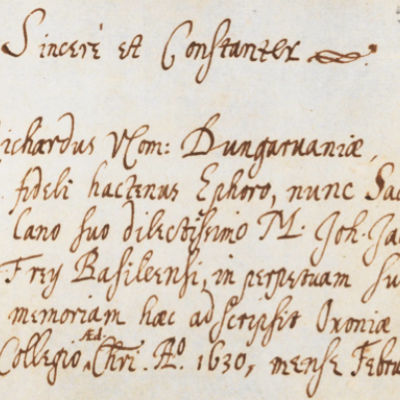 Sincerè et Constanter
ichardus VCom: Dungaruaniæ,
fideli hactenus Ephoro, nunc Sac
lano suo dilectissimo M. Joh. Ja
Frey Basileensi, in perpetuam su
memoriam hæc adscripsit Oxoniæ
Collegio Æd. Chri. Aº. 1630, mense Febru